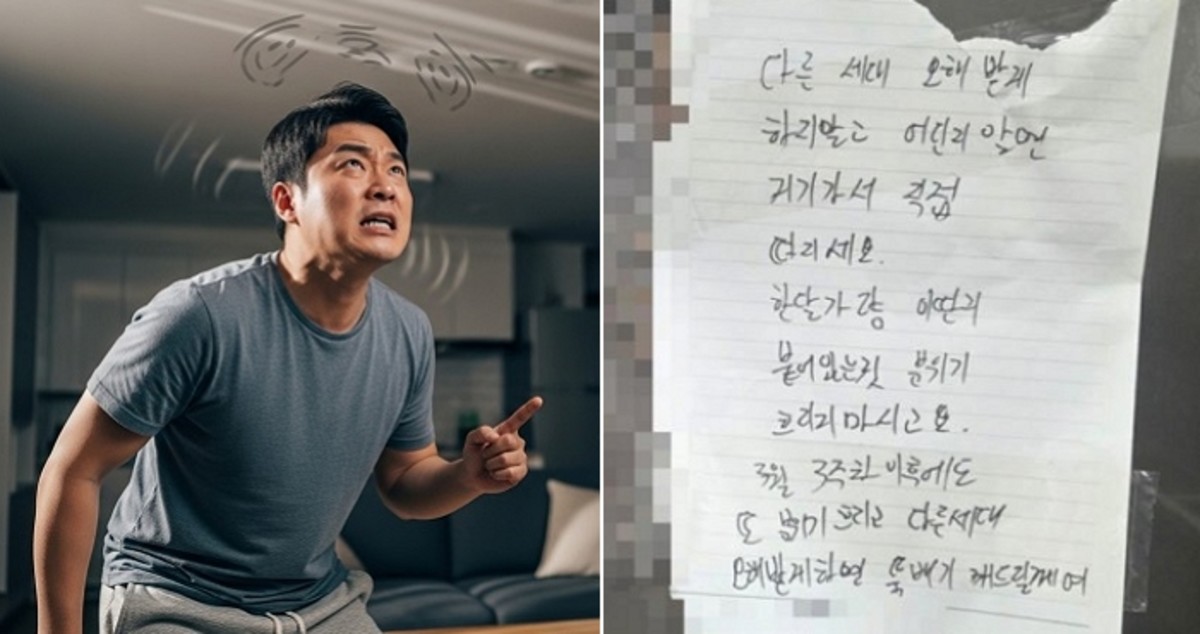 다른 세대 오해 받게
하지말고 어딘지 알면
거기가서 직접
따지세요.
한달가량 어딘지
붙어있는것 분위기
흐리지마시고요.
3월 3주차 이후에도
또 분위기 흐리고 다른세대
오해받게하면 뚝배기 깨드릴게여